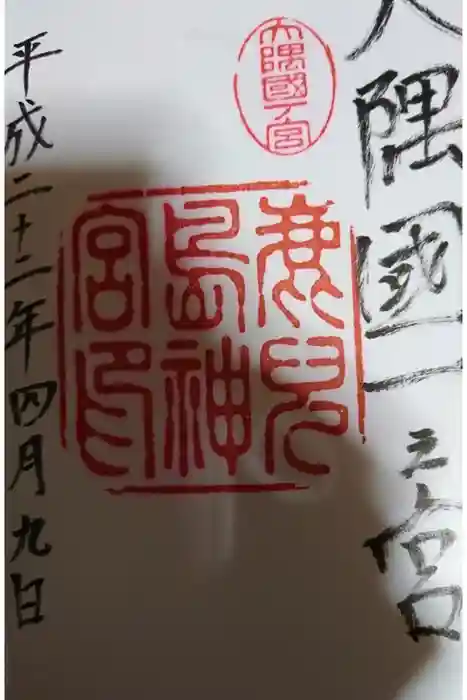 大隅國一之宮
大隅國一宮
鹿兒
島神
宮印
平成二十二年四月九日